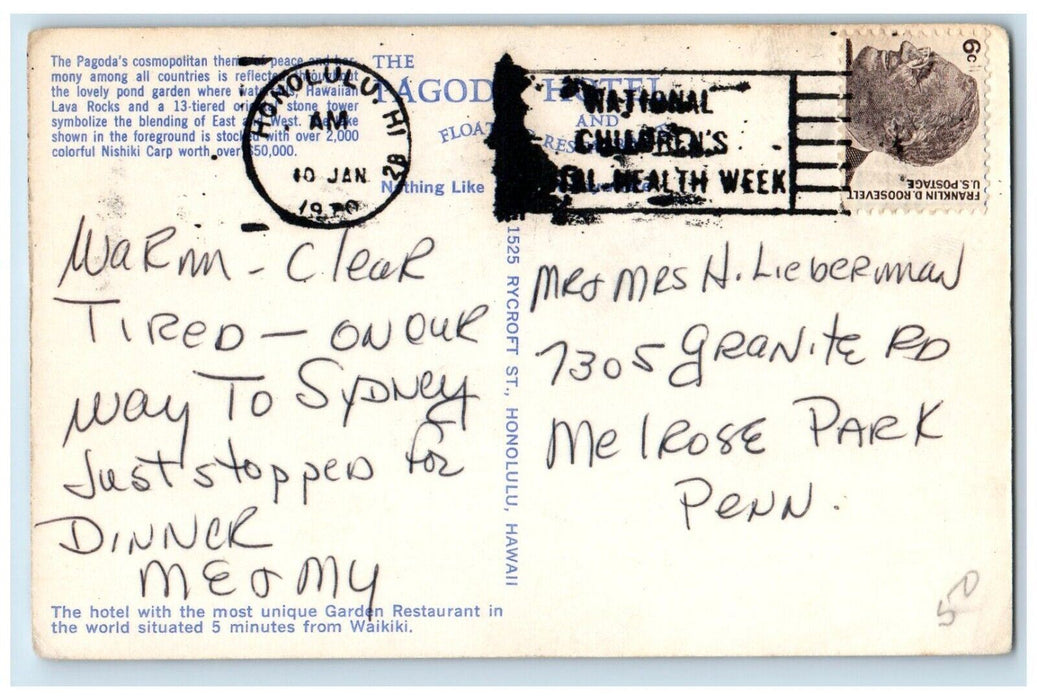 The Pagoda's cosmopolitan theme of peace and har-
mony among all countries is reflected throughout
the lovely pond garden where Hawaiian
Lava Rocks and a 13-tiered stone tower
symbolize the blending of East and West. The
shown in the foreground is stocked with over 2,000
colorful Nishiki Carp worth over $50,000.
THE
PAGODA HOTEL
AND
FLOATING RESTAURANT
Nothing Like
HONOLULU, HI
AM
10 JAN
1970
28
NATIONAL
CHILDREN'S
DENTAL HEALTH WEEK
6c
U.S. POSTAGE
FRANKLIN D. ROOSEVELT
WARM - Clear
TIRED - ON OUR
way TO SYDNEY
Just stopped for
DINNER
ME & MY
The hotel with the most unique Garden Restaurant in
the world situated 5 minutes from Waikiki.
1525 RYCROFT ST., HONOLULU, HAWAII
MR & MRS H. Lieberman
7305 GRANITE RD
Melrose PARK
PENN.
50